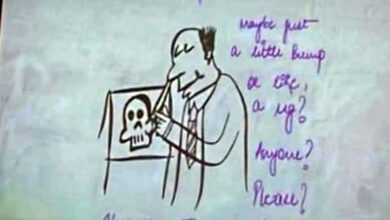 maybe just
a little bump
or like,
a ug?
Anyone?
Please?